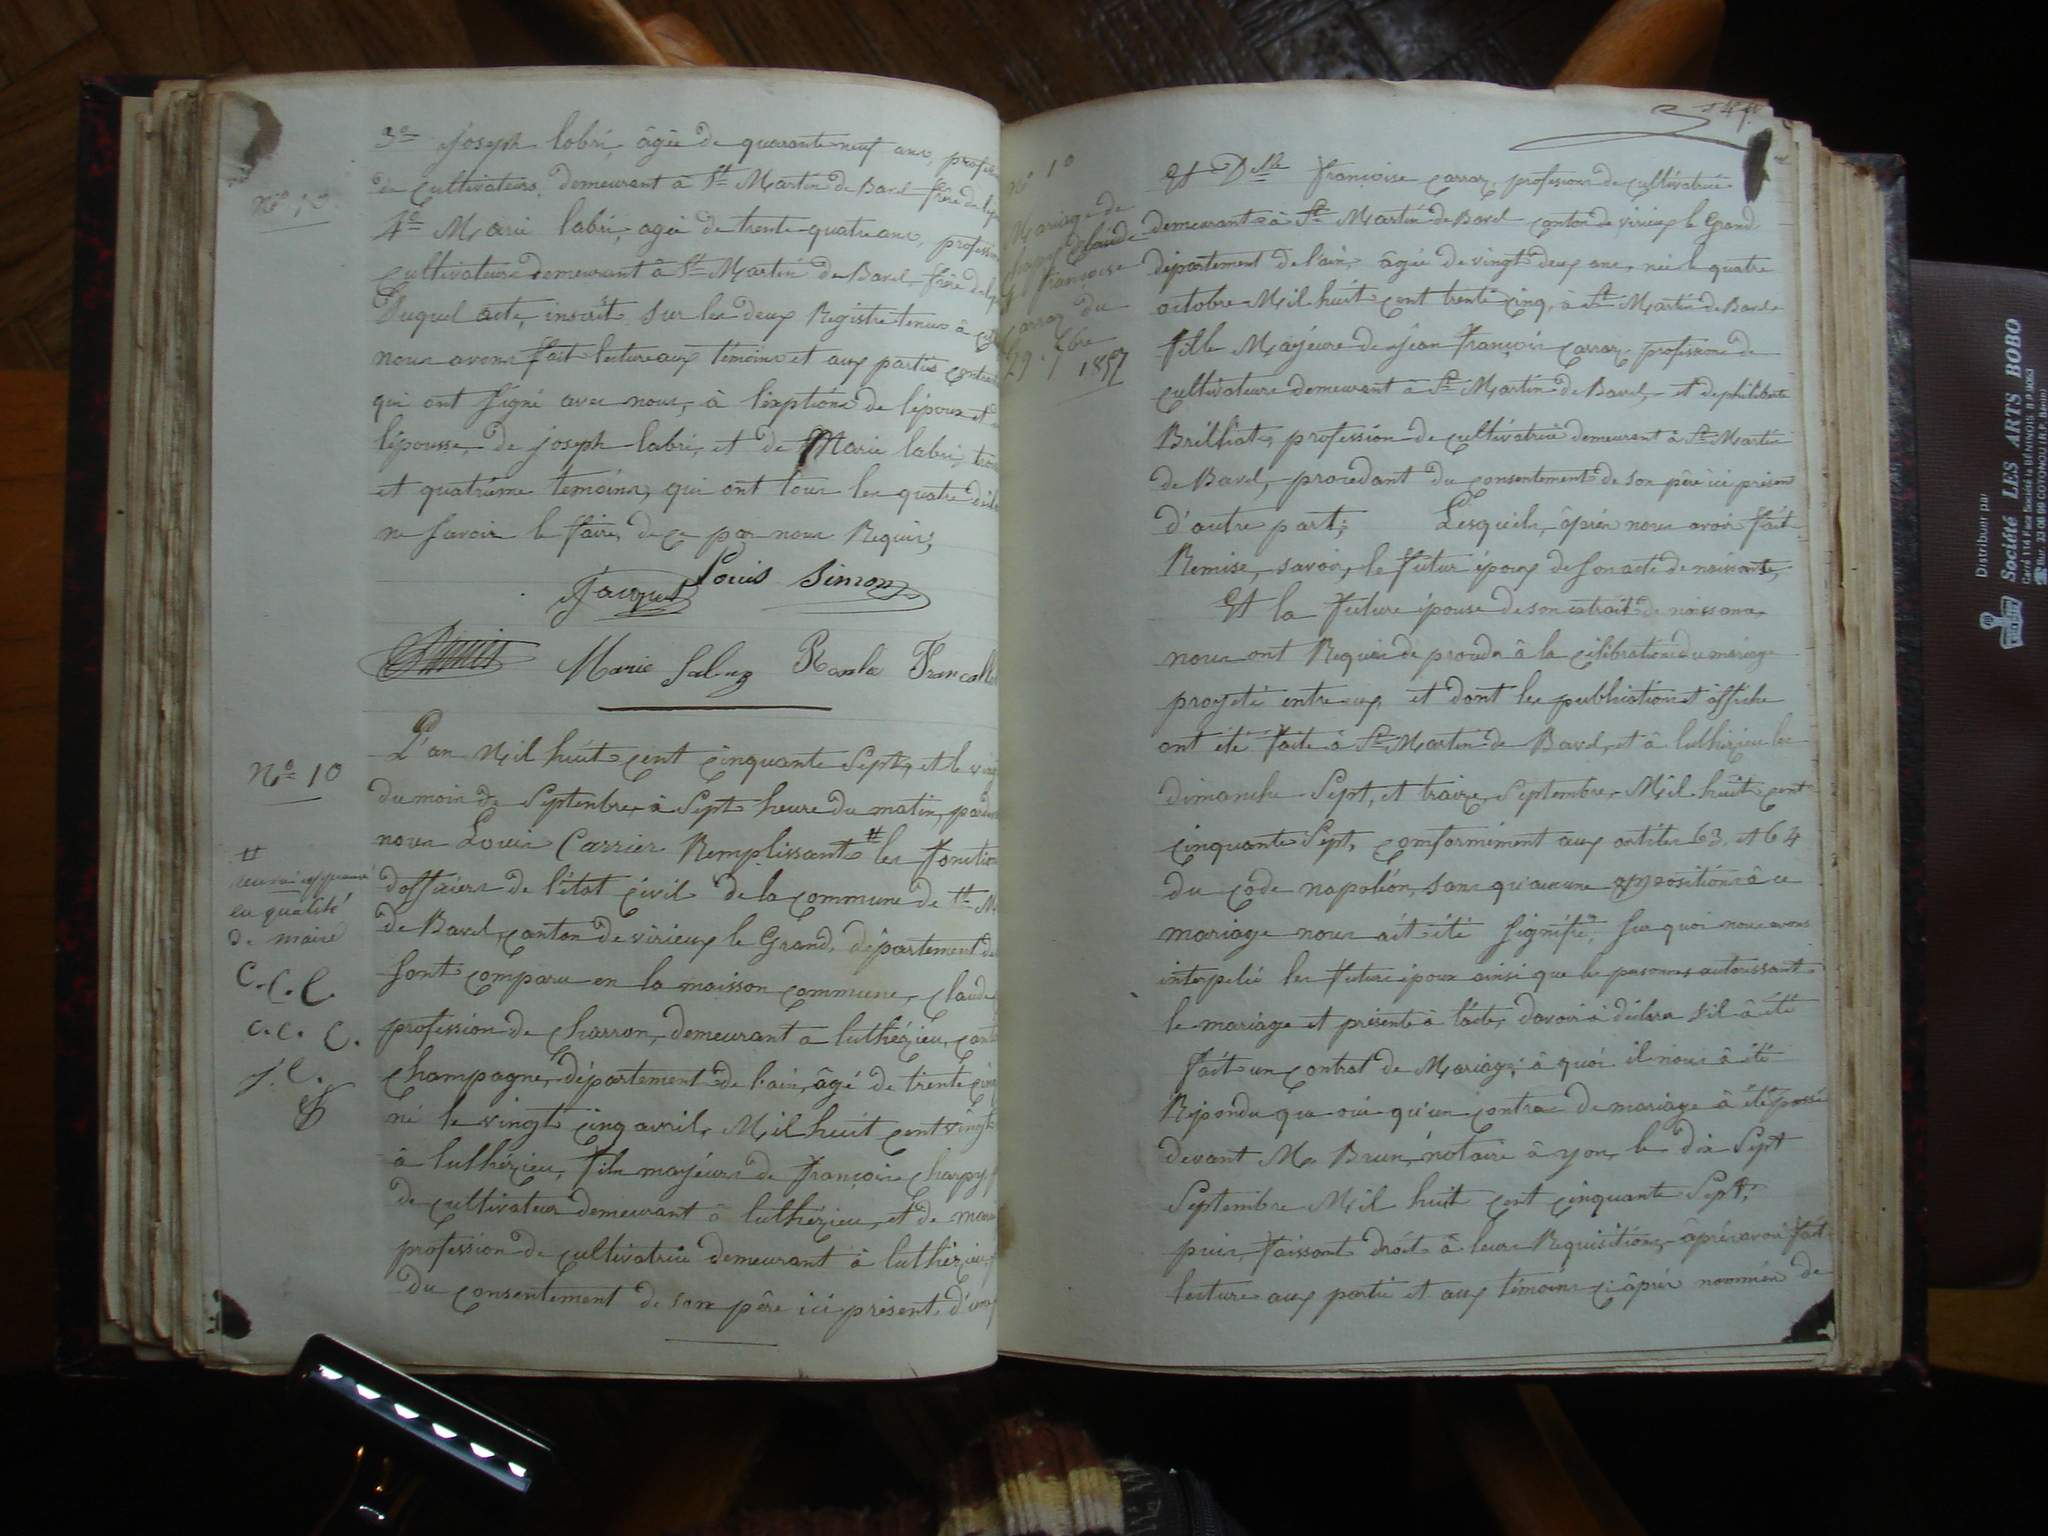 3e Joseph labri, âgée de quarante neuf ans,
de cultivateurs, demeurant à St Martin de Bavel frère de
No 10
4e Marie labri, agée de trente quatre ans, profession
cultivateure demeurant à St Martin de Bavel, frère de
Duquel acte, inscrit sur les deux Registre tenus à
nous avons fait lecture aux témoins et aux partis
qui ont signé avec nous, à l'exption de l'époux et
l'épousse, de joseph labri, et de Marie labri,
et quatriéme témoins, qui ont tous les quatre
ne savoir le faire, de ce par nous Requis;
Jacquet Louis Simon
Marie François
No 10
L'an Mil huit cent cinquante Sept, et le
du mois de Septembre, à Sept heure du matin,
nous Louis Carrier Remplissant # les fonction
d'officiers de l'état civil de la commune de St
de Bavel, canton de virieux le Grand, département
sont comparu en la maisson commune, claude
profession de charron, demeurant a luthézieu,
champagne, département de l'ain, âgé de trente cinq
né le vingt cinq avril, Mil huit cent vingt
à luthézieu, fils mayéurs de François charpy,
de cultivateur demeurant à luthézieu, et de
profession de cultivatrice demeurant à luthézieu
du consentement de son père ici présent, d'une
#
en qualité
de maire
C.C.C.
c.c.C.
f.C.
No 10
Mariage de
claude
et françoise
carraz du
29 7bre
1857
Et Delle françoise carraz, professions de cultivatrice
demeurant à St Martin de Bavel canton de virieux le Grand
département de l'ain, âgée de vingt deux ans, née le quatre
octobre Mil huit cent trente cinq, à St Martin de Bavel
fille Mayéure de jean françois carraz, professions de
cultivateurs demeurant à St Martin de Bavel, et de philiberte
Brillat, profession de cultivatrice demeurant à St Martin
de Bavel, procedant du consentement de son père ici présent
d'autre part; Lesquels, âprés nous avoir fait
Remise, savoir, le futur époux de son acte de naissante,
Et la future épouse de son extrait de naissance
nous ont Requis de procéda à la célibration du mariage
projeté entre eux, et dont les publication et affiche
ont été faite à St Martin de Bavel, et à luthézieu les
dimanche Sept, et traize, Septembre, Mil huit cent
cinquante Sept, comformément aux articles 63, et 64
du code napoléon, sans qu'aucune oppositions à ce
mariage nous ait été signifié, sur quoi nous avons
interpelié les future époux ainsi que les personnes autorissant
le mariage et présente à l'acte, d'avoir à déclara s'il â été
fait un contrat de Mariage; à quoi il nous â été
Répondu que oui qu'un contra de mariage â été passé
devant Me Brun, notaire à yon, le dix Sept
Septembre Mil huit cent cinquante Sept;
puis, faissant droit à leurs Réquisitions, âprés avoir fait
lecture aux partie et aux témoins, âprés
Distribuer par
Société LES ARTS BOBO